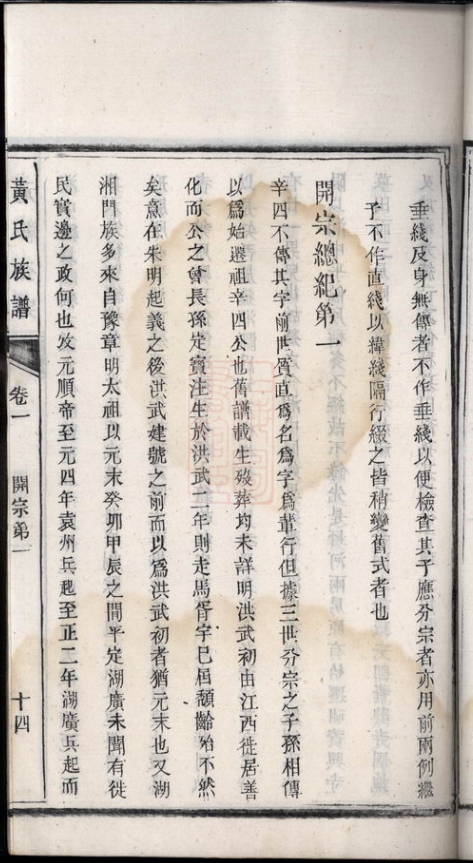 垂綫及身無傳者不作垂綫以便檢查其子應分宗者亦用前兩例繼
子不作直綫以緯綫隔行綴之皆稍變舊式者也
開宗總紀第一
辛四不傳其字前世質直爲名爲字爲輩行但據三世分宗之子孫相傳
以爲始遷祖辛四公也舊譜載生歿葬均未詳明洪武初由江西徙居善
化而公之曾長孫定寶注生於洪武二年則走馬胥宇已屆頹齡殆不然
矣意在朱明起義之後洪武建號之前而以爲洪武初者猶元末也又湖
湘門族多來自豫章明太祖以元末癸卯甲辰之間平定湖廣未聞有徙
民實邊之政何也攷元順帝至元四年袁州兵起至正二年湖廣兵起而
黃氏族譜
卷一
開宗弟一
十四